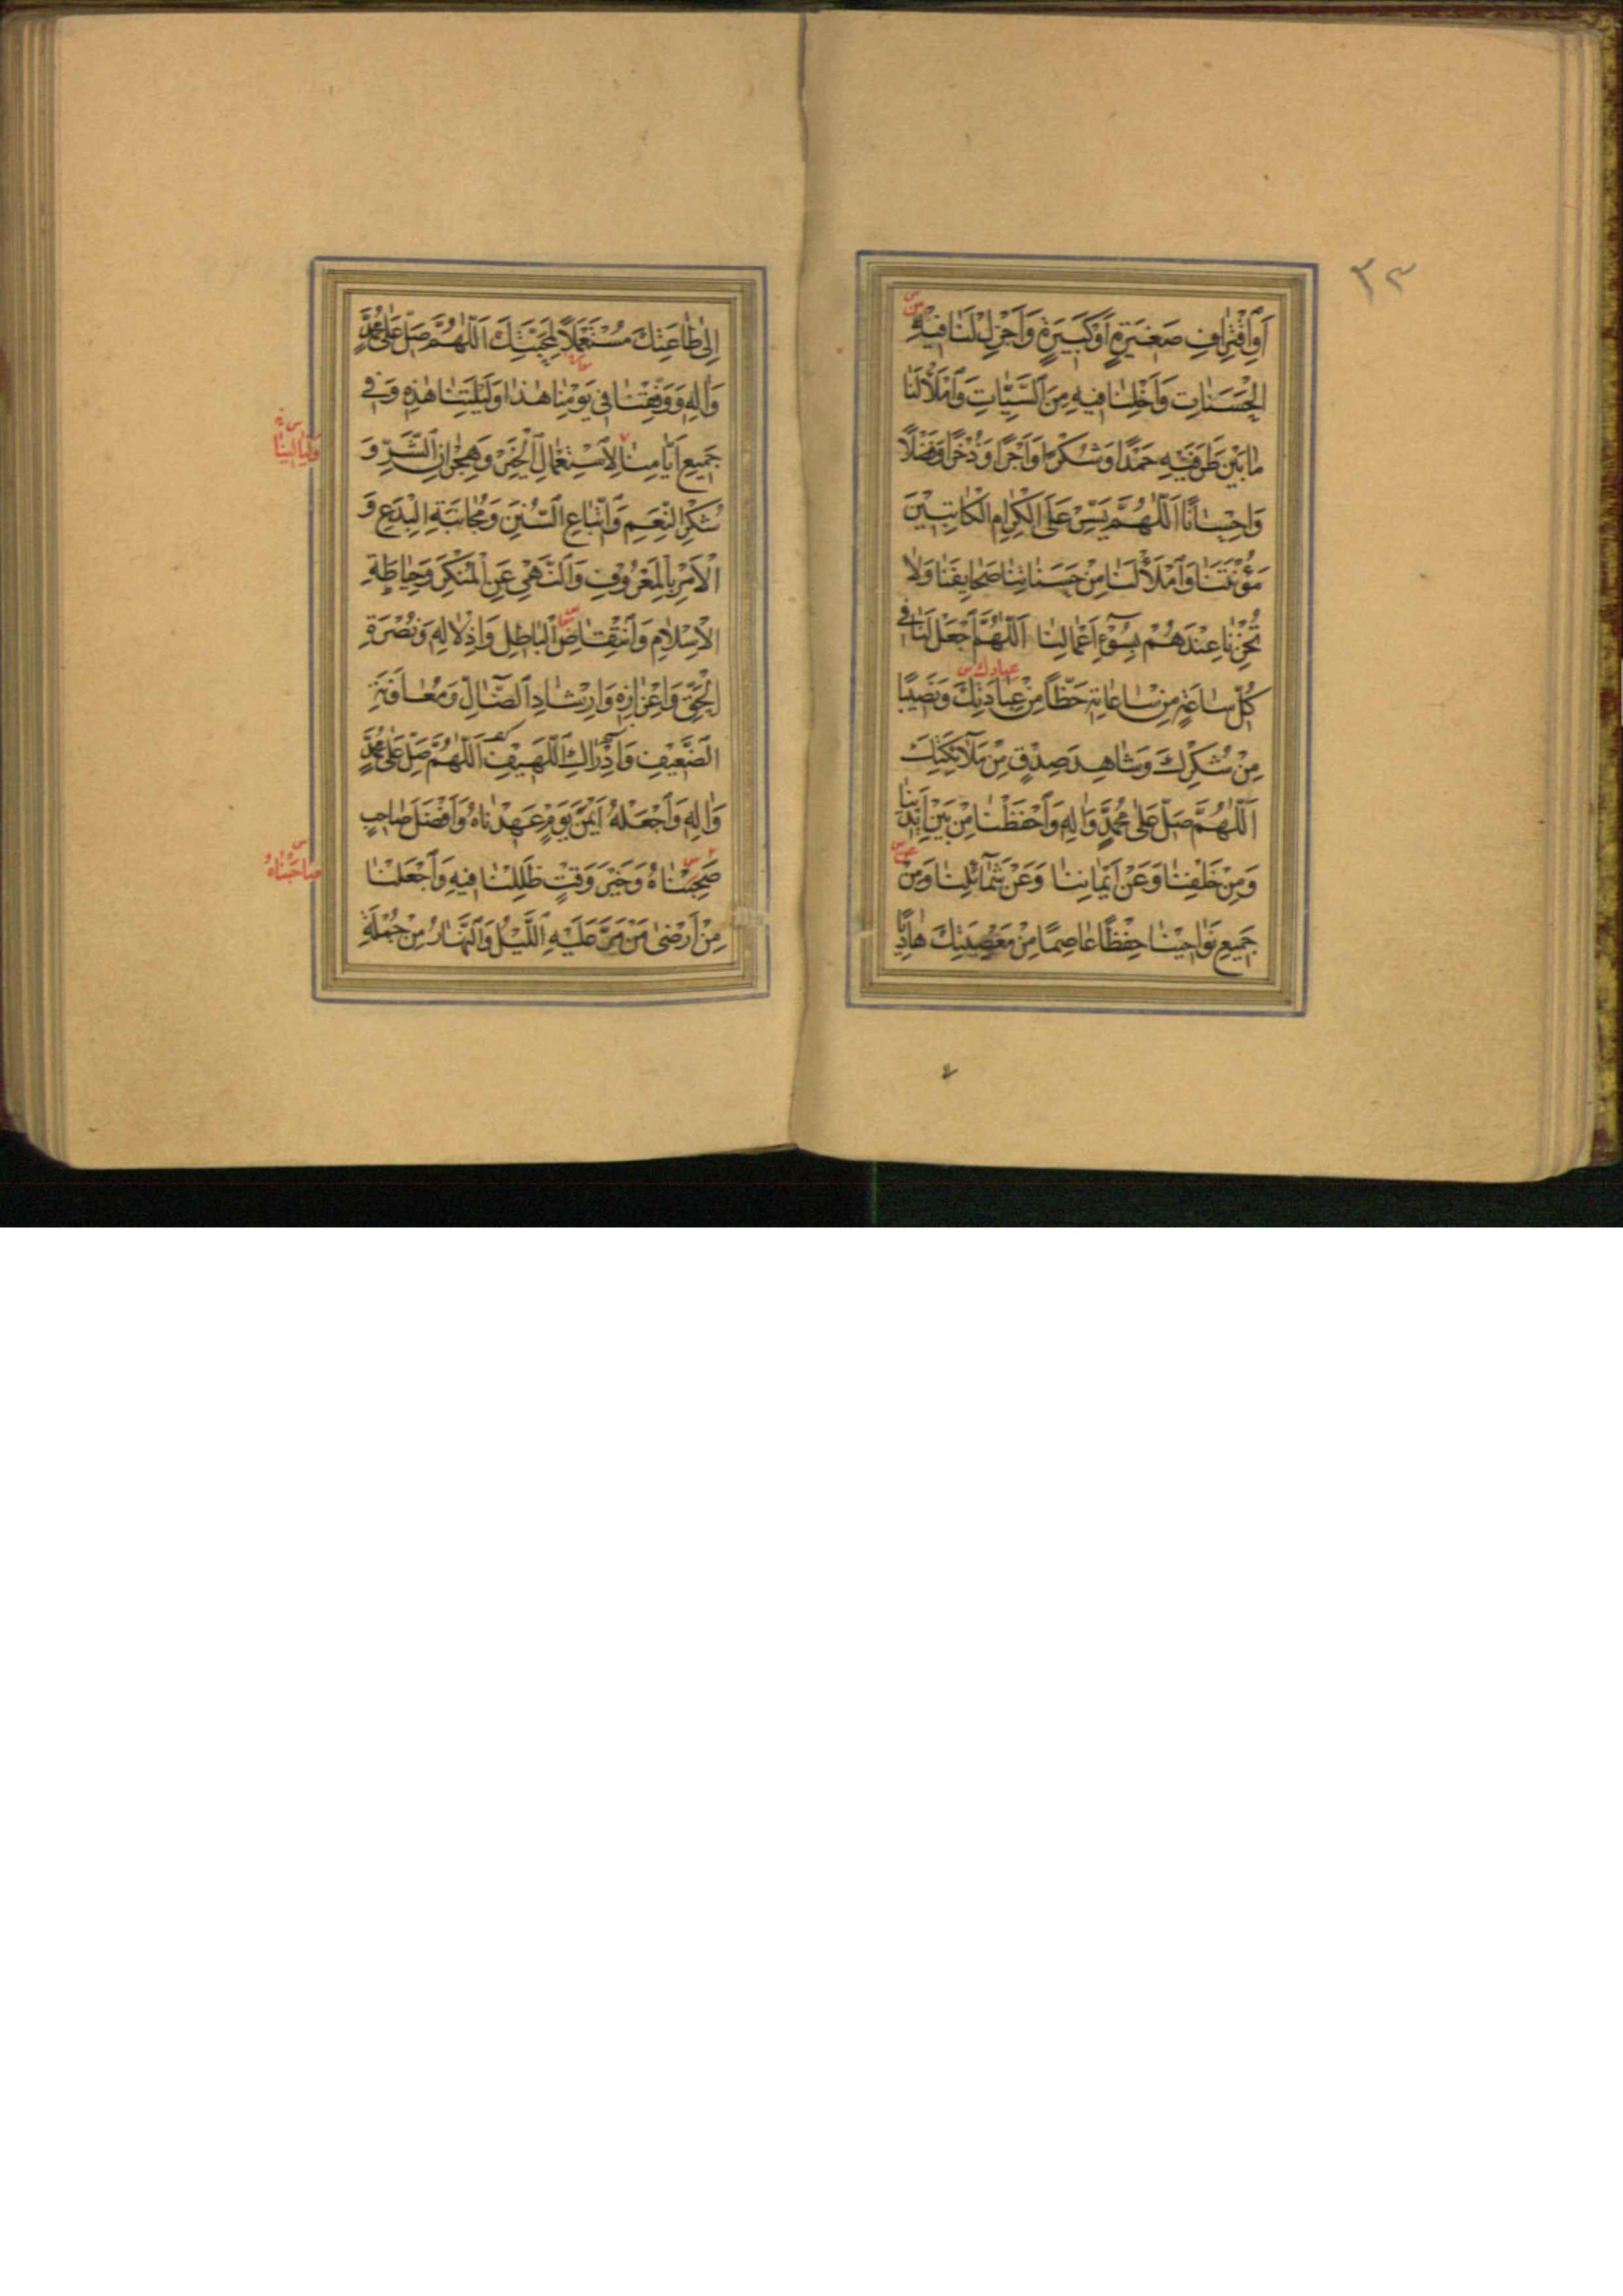 ٣٣
أَوِ اقْتِرَافِ صَغِيرَةٍ أَوْ كَبِيرَةٍ وَأَجْزِلْ لَنَا فِيهِ
مِنَ س
الْحَسَنَاتِ وَأَخْلِنَا فِيهِ مِنَ السَّيِّئَاتِ وَامْلَأْ لَنَا
مَا بَيْنَ طَرَفَيْهِ حَمْدًا وَشُكْرًا وَأَجْرًا وَذُخْرًا وَفَضْلًا
وَإِحْسَانًا اَللّٰهُمَّ يَسِّرْ عَلَى الْكِرَامِ الْكَاتِبِينَ
مَؤُنَتَنَا وَامْلَأْ لَنَا مِنْ حَسَنَاتِنَا صَحَايِفَنَا وَلَا
تُخْزِنَا عِنْدَهُمْ بِسُوءِ أَعْمَالِنَا اَللّٰهُمَّ اجْعَلْ لَنَا فِي
كُلِّ سَاعَةٍ مِنْ سَاعَاتِهِ حَظًّا مِنْ عِبَادَتِكَ وَنَصِيبًا
عبادك س
مِنْ شُكْرِكَ وَشَاهِدَ صِدْقٍ مِنْ مَلَآئِكَتِكَ
اَللّٰهُمَّ صَلِّ عَلَى مُحَمَّدٍ وَآلِهِ وَاحْفَظْنَا مِنْ بَيْنِ أَيْدِينَا
وَمِنْ خَلْفِنَا وَعَنْ أَيْمَانِنَا وَعَنْ شَمَآئِلِنَا وَمِنْ
عن س
جَمِيعِ نَوَاحِينَا حِفْظًا عَاصِمًا مِنْ مَعْصِيَتِكَ هَادِيًا
إِلَى طَاعَتِكَ مُسْتَعْمِلًا لِمَحَبَّتِكَ اَللّٰهُمَّ صَلِّ عَلَى مُحَمَّدٍ
وَآلِهِ وَوَفِّقْنَا فِي يَوْمِنَا هٰذَا وَلَيْلَتِنَا هٰذِهِ وَفِي
جَمِيعِ أَيَّامِنَا لِاسْتِعْمَالِ الْخَيْرِ وَهِجْرَانِ الشَّرِّ وَ
وَلَيَالِينَا
شُكْرِ النِّعَمِ وَاتِّبَاعِ السُّنَنِ وَمُجَانَبَةِ الْبِدَعِ وَ
الْأَمْرِ بِالْمَعْرُوفِ وَالنَّهْيِ عَنِ الْمُنْكَرِ وَحِيَاطَةِ
الْإِسْلَامِ وَانْتِقَاصِ الْبَاطِلِ وَإِذْلَالِهِ وَنُصْرَةِ
الْحَقِّ وَإِعْزَازِهِ وَإِرْشَادِ الضَّآلِّ وَمُعَاوَنَةِ
الضَّعِيفِ وَإِدْرَاكِ اللَّهِيفِ اَللّٰهُمَّ صَلِّ عَلَى مُحَمَّدٍ
وَآلِهِ وَاجْعَلْهُ أَيْمَنَ يَوْمٍ عَهِدْنَاهُ وَأَفْضَلَ صَاحِبٍ
صَحِبْنَاهُ وَخَيْرَ وَقْتٍ ظَلِلْنَا فِيهِ وَاجْعَلْنَا
صَاحَبْنَاهُ س
مِنْ أَرْضَى مَنْ مَرَّ عَلَيْهِ اللَّيْلُ وَالنَّهَارُ مِنْ جُمْلَةِ